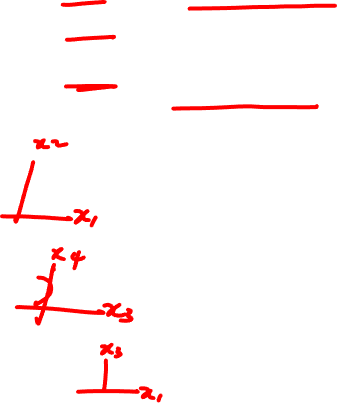 x2
x1
x4
x3
x3
x1